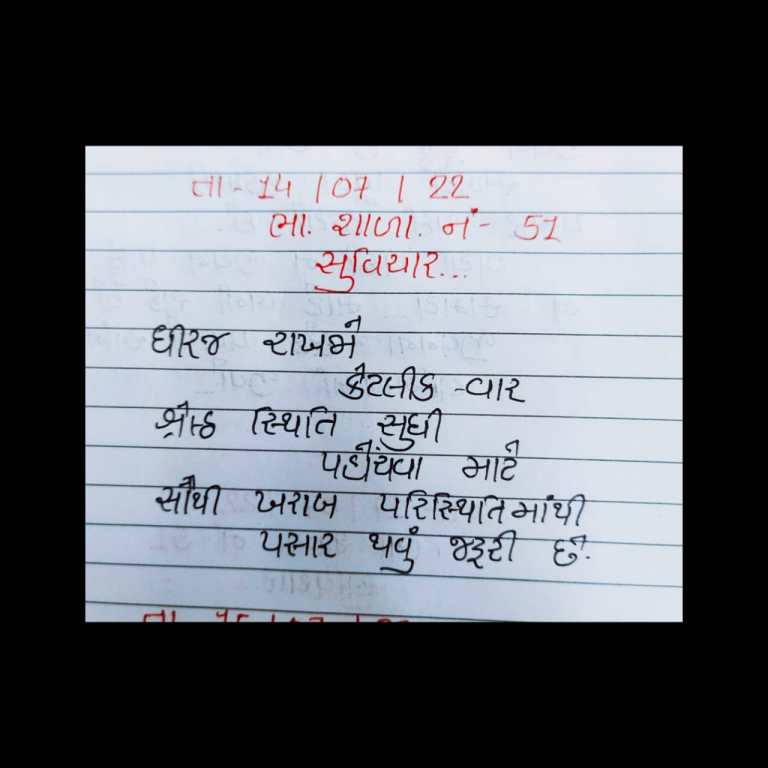 તા - 14 / 07 / 22
ભા. શાળા. નં - 51
સુવિચાર...
ધીરજ રાખજો
કેટલીક - વાર
શ્રેષ્ઠ સ્થિતિ સુધી
પહોંચવા માટે
સૌથી ખરાબ પરિસ્થિતિમાંથી
પસાર થવું જરૂરી છે.